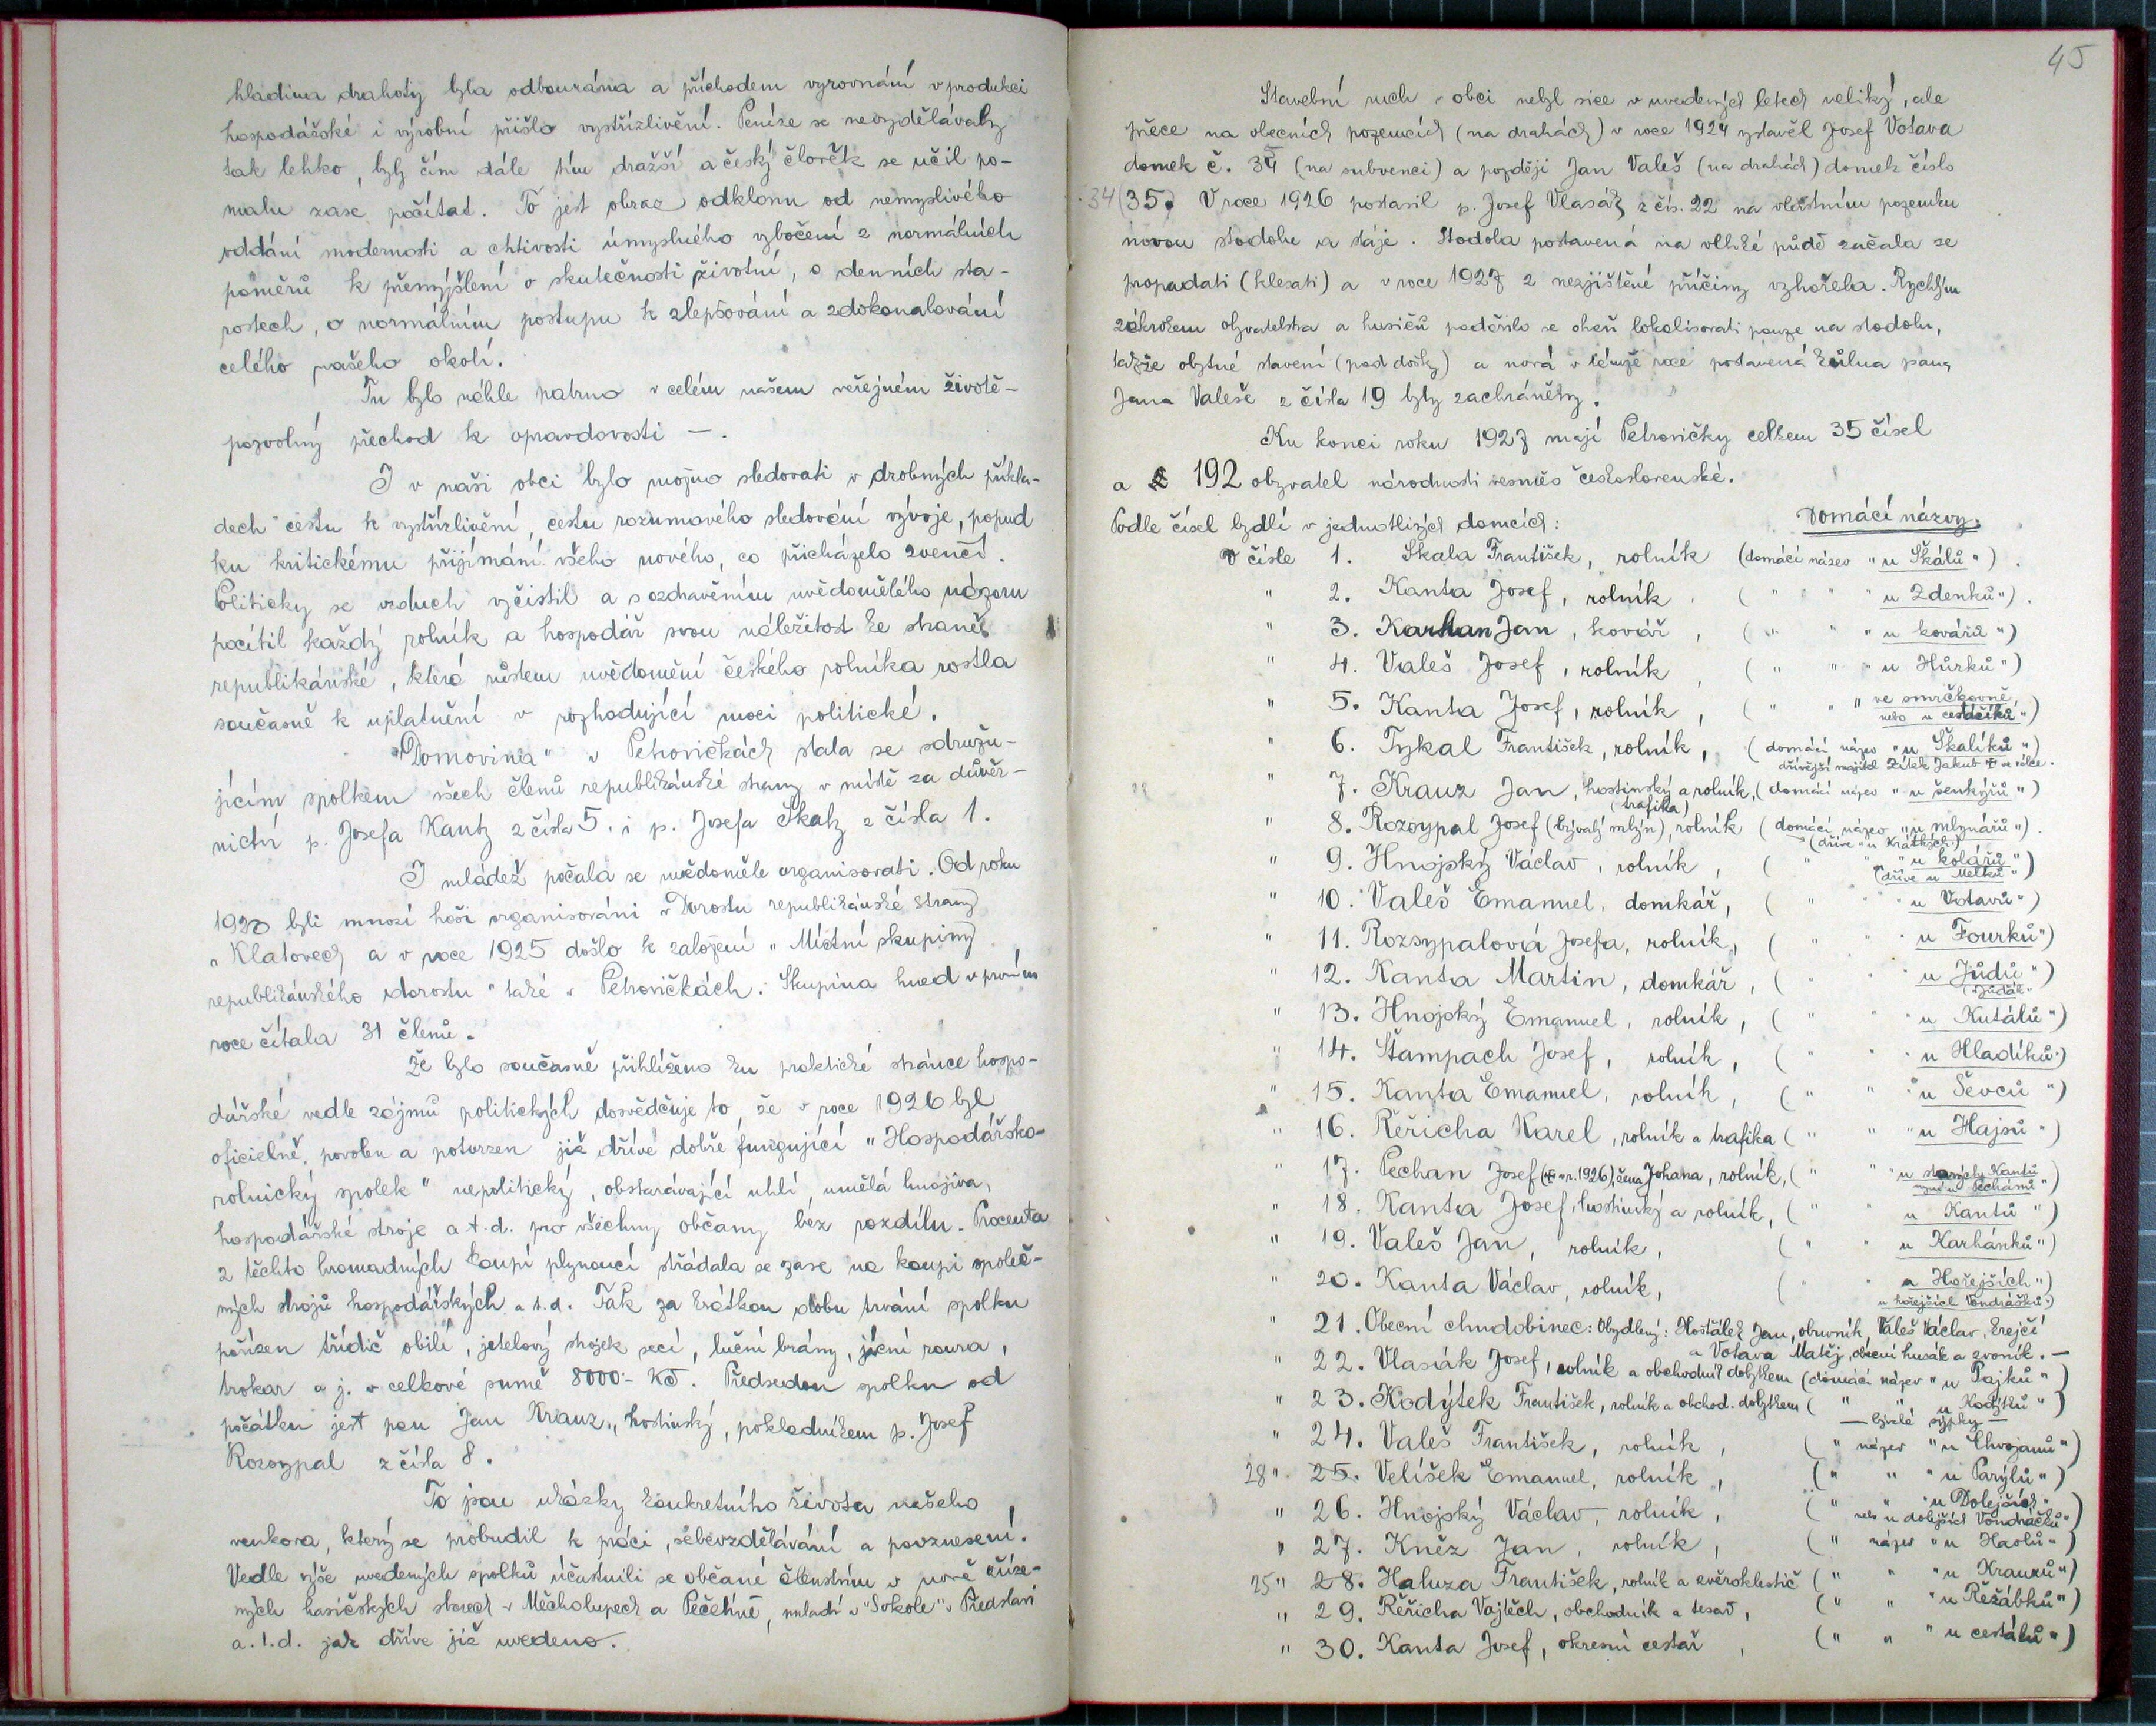 hladina drahoty byla odbourána a příchodem vyrovnání v produkci
hospodářské i výrobní přišlo vystřízlivění. Peníze se nevydělávaly
tak lehko, byly čím dále tím dražší a český člověk se učil po-
malu zase počítat. To jest obraz odklonu od nemyslivého
oddání modernosti a chtivosti úmyslného vybočení z normálních
poměrů k přemýšlení o skutečnosti životní, o denních sta-
rostech, o normálním postupu k zlepšování a zdokonalování
celého našeho okolí.
Tu bylo náhle patrno v celém našem veřejném životě -
pozvolný přechod k opravdovosti —.
I v naší obci bylo možno sledovati v drobných příkla-
dech cestu k vystřízlivění, cestu rozumového sledování vývoje, popud
ku kritickému přijímání všeho nového, co přicházelo zvenčí.
Politicky se vzduch vyčistil a s ozdravěním uvědomělého názoru
pocítil každý rolník a hospodář svou náležitost ke straně
republikánské, která růstem uvědomění českého rolníka rostla
současně k uplatnění v rozhodující moci politické.
"Domovina" v Petrovičkách stala se sdružu-
jícím spolkem všech členů republikánské strany v místě za důvěr-
nictví p. Josefa Kanty z čísla 5. i p. Josefa Skaly z čísla 1.
I mládež počala se uvědoměle organisovati. Od roku
1920 byli mnozí hoši organisováni v Dorostu republikánské strany
v Klatovech a v roce 1925 došlo k založení "Místní skupiny
republikánského dorostu" také v Petrovičkách. Skupina hned v prvním
roce čítala 31 členů.
Že bylo současně přihlíženo ku praktické stránce hospo-
dářské vedle zájmů politických dosvědčuje to, že v roce 1926 byl
oficielně povolen a potvrzen již dříve dobře fungující "Hospodářsko-
rolnický spolek" nepolitický, obstarávající uhlí, umělá hnojiva,
hospodářské stroje a t.d. pro všechny občany bez rozdílu. Procenta
z těchto hromadných koupí plynoucí střádala se zase na koupi společ-
ných strojů hospodářských a t.d. Tak za krátkou dobu trvání spolku
pořízen třídič obilí, jetelový strojek secí, luční brány, jícní roura,
trokar a j. v celkové sumě 8000.- Kč. Předsedou spolku od
počátku jest pan Jan Kranz, hostinský, pokladníkem p. Josef
Rozsypal z čísla 8.
To jsou ukázky konkretního života našeho
venkova, který se probudil k práci, sebevzdělávání a povznesení.
Vedle výše uvedených spolků účastnili se občané členstvím v nově zříze-
ných hasičských sborech v Měcholupech a Pečetíně, mladí v "Sokole" v Předslavi
a.t.d. jak dříve již uvedeno.
45
Stavební ruch v obci nebyl sice v uvedených letech veliký, ale
přece na obecních pozemcích (na drahách) v roce 1924 vystavěl Josef Votava
domek č. 34 (na subvenci) a později Jan Valeš (na drahách) domek číslo
34 (35) V roce 1926 postavil p. Josef Vlasák z čís. 22 na vlastním pozemku
novou stodolu a stáje. Stodola postavená na vlhké půdě začala se
propadati (klesati) a v roce 1927 z nezjištěné příčiny vyhořela. Rychlým
zákrokem obyvatelstva a hasičů podařilo se oheň lokalisovati pouze na stodolu,
takže obytné stavení (pod došky) a nová v témže roce postavená kůlna pana
Jana Valeše z čísla 19 byly zachráněny.
Ku konci roku 1927 mají Petrovičky celkem 35 čísel
a 192 obyvatel národnosti vesměs československé.
Podle čísel bydlí v jednotlivých domcích: Domácí názvy.
V čísle 1. Skala František, rolník (domácí název "u Skálů").
" 2. Kanta Josef, rolník, ( " " "u Zdenků").
" 3. Karhan Jan, kovář, ( " " "u kovářů")
" 4. Valeš Josef, rolník, ( " " "u Hůrků")
" 5. Kanta Josef, rolník, ( " " "ve smrčkovně,
nebo u cestáříků")
" 6. Tykal František, rolník, (domácí název "u Škalíků")
dřívější majitel Zítek Jakub † ve válce.
" 7. Kranz Jan, hostinský a rolník, (domácí název "u šenkýřů")
(trafika)
" 8. Rozsypal Josef (bývalý mlýn), rolník (domácí název "u mlynářů").
(dříve "u Krátkých")
" 9. Hnojský Václav, rolník, ( " " "u kolářů"
(dříve u Melků")
" 10. Valeš Emanuel, domkář, ( " " "u Votavů")
" 11. Rozsypalová Josefa, rolník, ( " " "u Fourků")
" 12. Kanta Martin, domkář, ( " " "u Jůdů")
(Jůdák"
" 13. Hnojský Emanuel, rolník, ( " " "u Kutálů")
" 14. Štampach Josef, rolník, ( " " "u Hladíků")
" 15. Kanta Emanuel, rolník, ( " " "u Ševců")
" 16. Řeřicha Karel, rolník a trafika ( " " "u Hajsů")
" 17. Pechan Josef († v r. 1926), žena Johana, rolník, ( " " "u starých Kantů
nyní u Pechanů")
" 18. Kanta Josef, hostinský a rolník, ( " " u Kantů")
" 19. Valeš Jan, rolník, ( " " u Karhánků")
" 20. Kanta Václav, rolník, ( " " u Hořejších")
u hořejších Vondrášků")
" 21. Obecní chudobinec: Obydlený: Hošťálek Jan, obuvník, Valeš Václav, krejčí
a Votava Matěj, obecní husák a zvoník. —
" 22. Vlasák Josef, rolník a obchodník dobytkem (domácí název "u Pajků")
" 23. Kodýtek František, rolník a obchod. dobytkem ( " " u Kodýtků")
— bývalé sýpky —
" 24. Valeš František, rolník, ( " název "u Chvojanů")
28 " 25. Velíšek Emanuel, rolník, ( " " "u Parýlů")
" 26. Hnojský Václav, rolník, ( " " "u Dolejších"
nebo u dolejších Vondráčků")
" 27. Kněz Jan, rolník, ( " název "u Havlů")
25 " 28. Haluza František, rolník a zvěroklestič ( " " "u Kranzů")
" 29. Řeřicha Vojtěch, obchodník a tesař, ( " " "u Řežábků")
" 30. Kanta Josef, okresní cestář, ( " " "u cestářů")